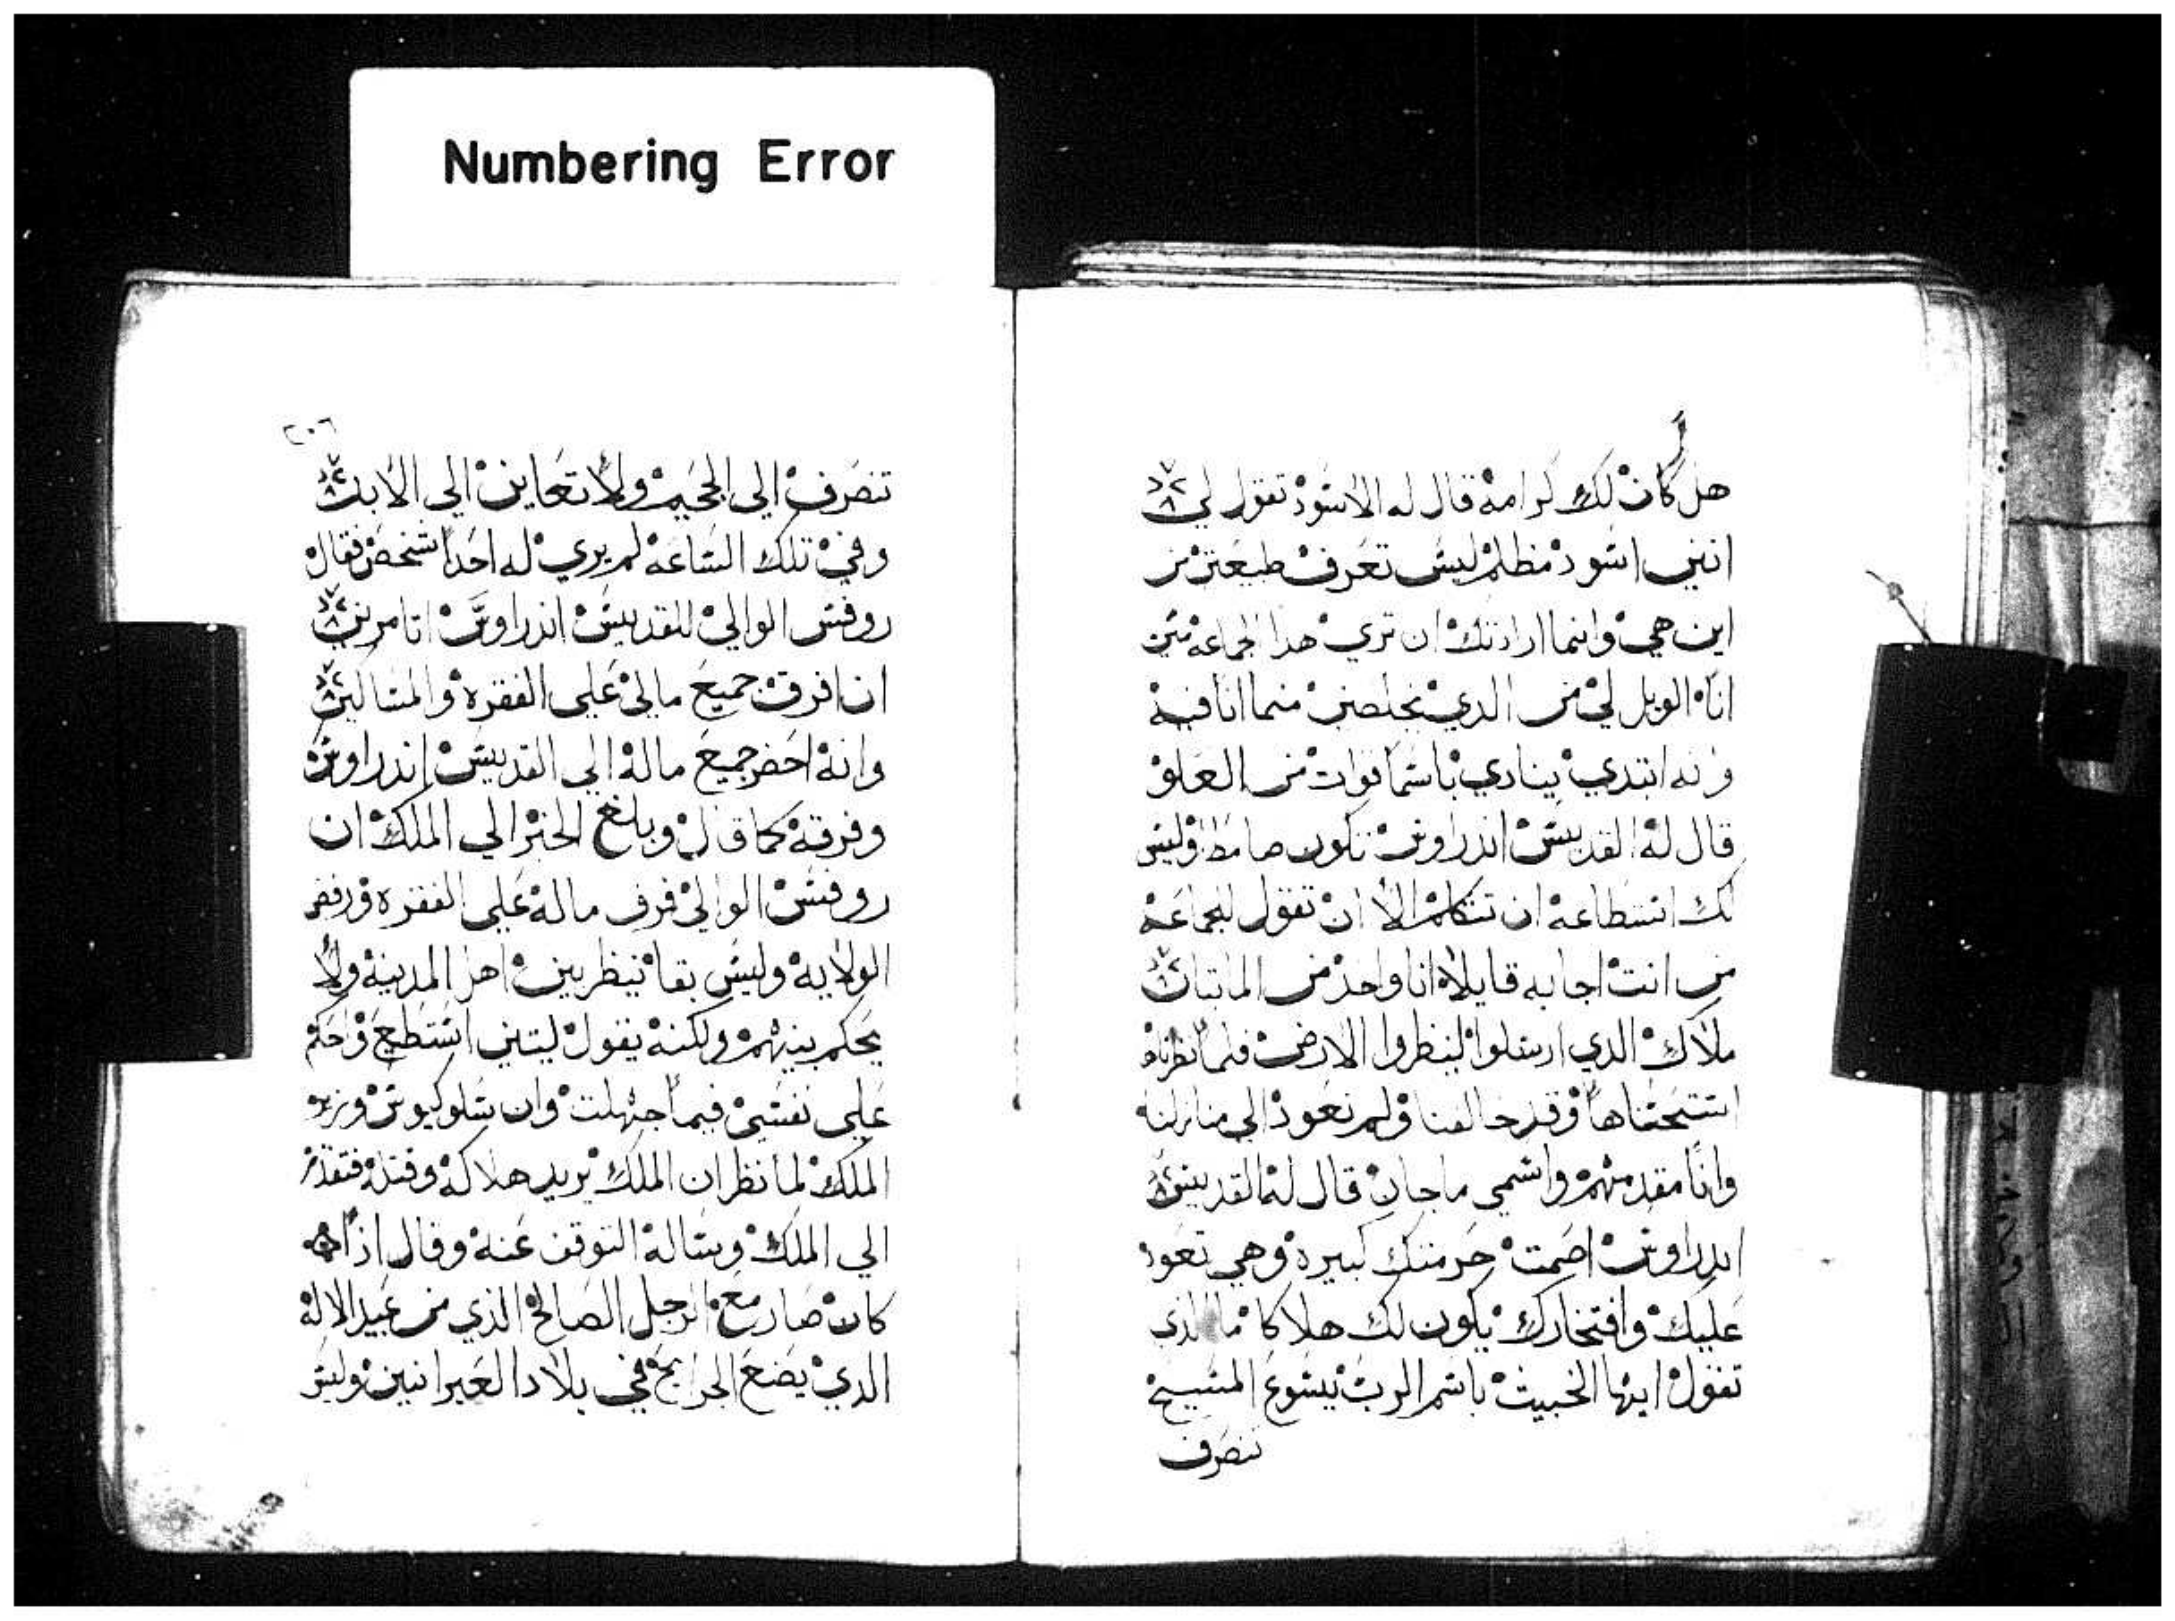 Numbering Error
هل كان لك كرامة قال له الاسود تقول لي
انني اسود مظلم ليس تعرف طبعتي من
اين هي وانما ارادتك ان تري هدا الجماعه متي
انا الويل لي من الدي يخلصني منما انا فيه
وانه ابتدي ينادي باسما قوات من العلو
قال له القديس اندراوس تكون صامطا وليس
لك استطاعة ان تتكلم الا ان تقول لجماعة
من انت اجابه قايلا انا واحد من الماتيان
ملاك الدي ارسلوا لينظروا الارض فلما نظرناها
استبحناها وقد خالفنا ولم نعود الي منازلنا
وانا مقدمهم واسمي ماجان قال له القديس
اندراوس اصمت حرمتك كبيرة وهي تعود
عليك وافتخارك يكون لك هلاكا ما الذي
تقول ايها الخبيث باسم الرب يسوع المسيح
تنصرف
٢٠٦
تنصرف الي الجحيم ولا تعاين الي الابد
وفي تلك الساعة لم يري له احدا شخص فقال
روفس الوالي للقديس اندراوس اتامرني
ان افرق جميع مالي علي الفقره والمساكين
وانه احضر جميع ماله الي القديس اندراوس
وفرقه كما قال وبلغ الخبر الي الملك ان
روفس الوالي فرق ماله علي الفقره ورفض
الولايه وليس بقا ينظر بين اهل المدينة ولا
يحكم بينهم ولكنه يقول ليتني استطيع واحكم
علي نفسي فيما جهلت وان سلوكيوس وزير
الملك لما نظر ان الملك يريد هلاكه وقتله فتقدم
الي الملك وساله التوقف عنه وقال اذا
كان صار مع الرجل الصالح الذي من عبيد الاله
الدي يضع الجرايح في بلاد العبرانيين وليس